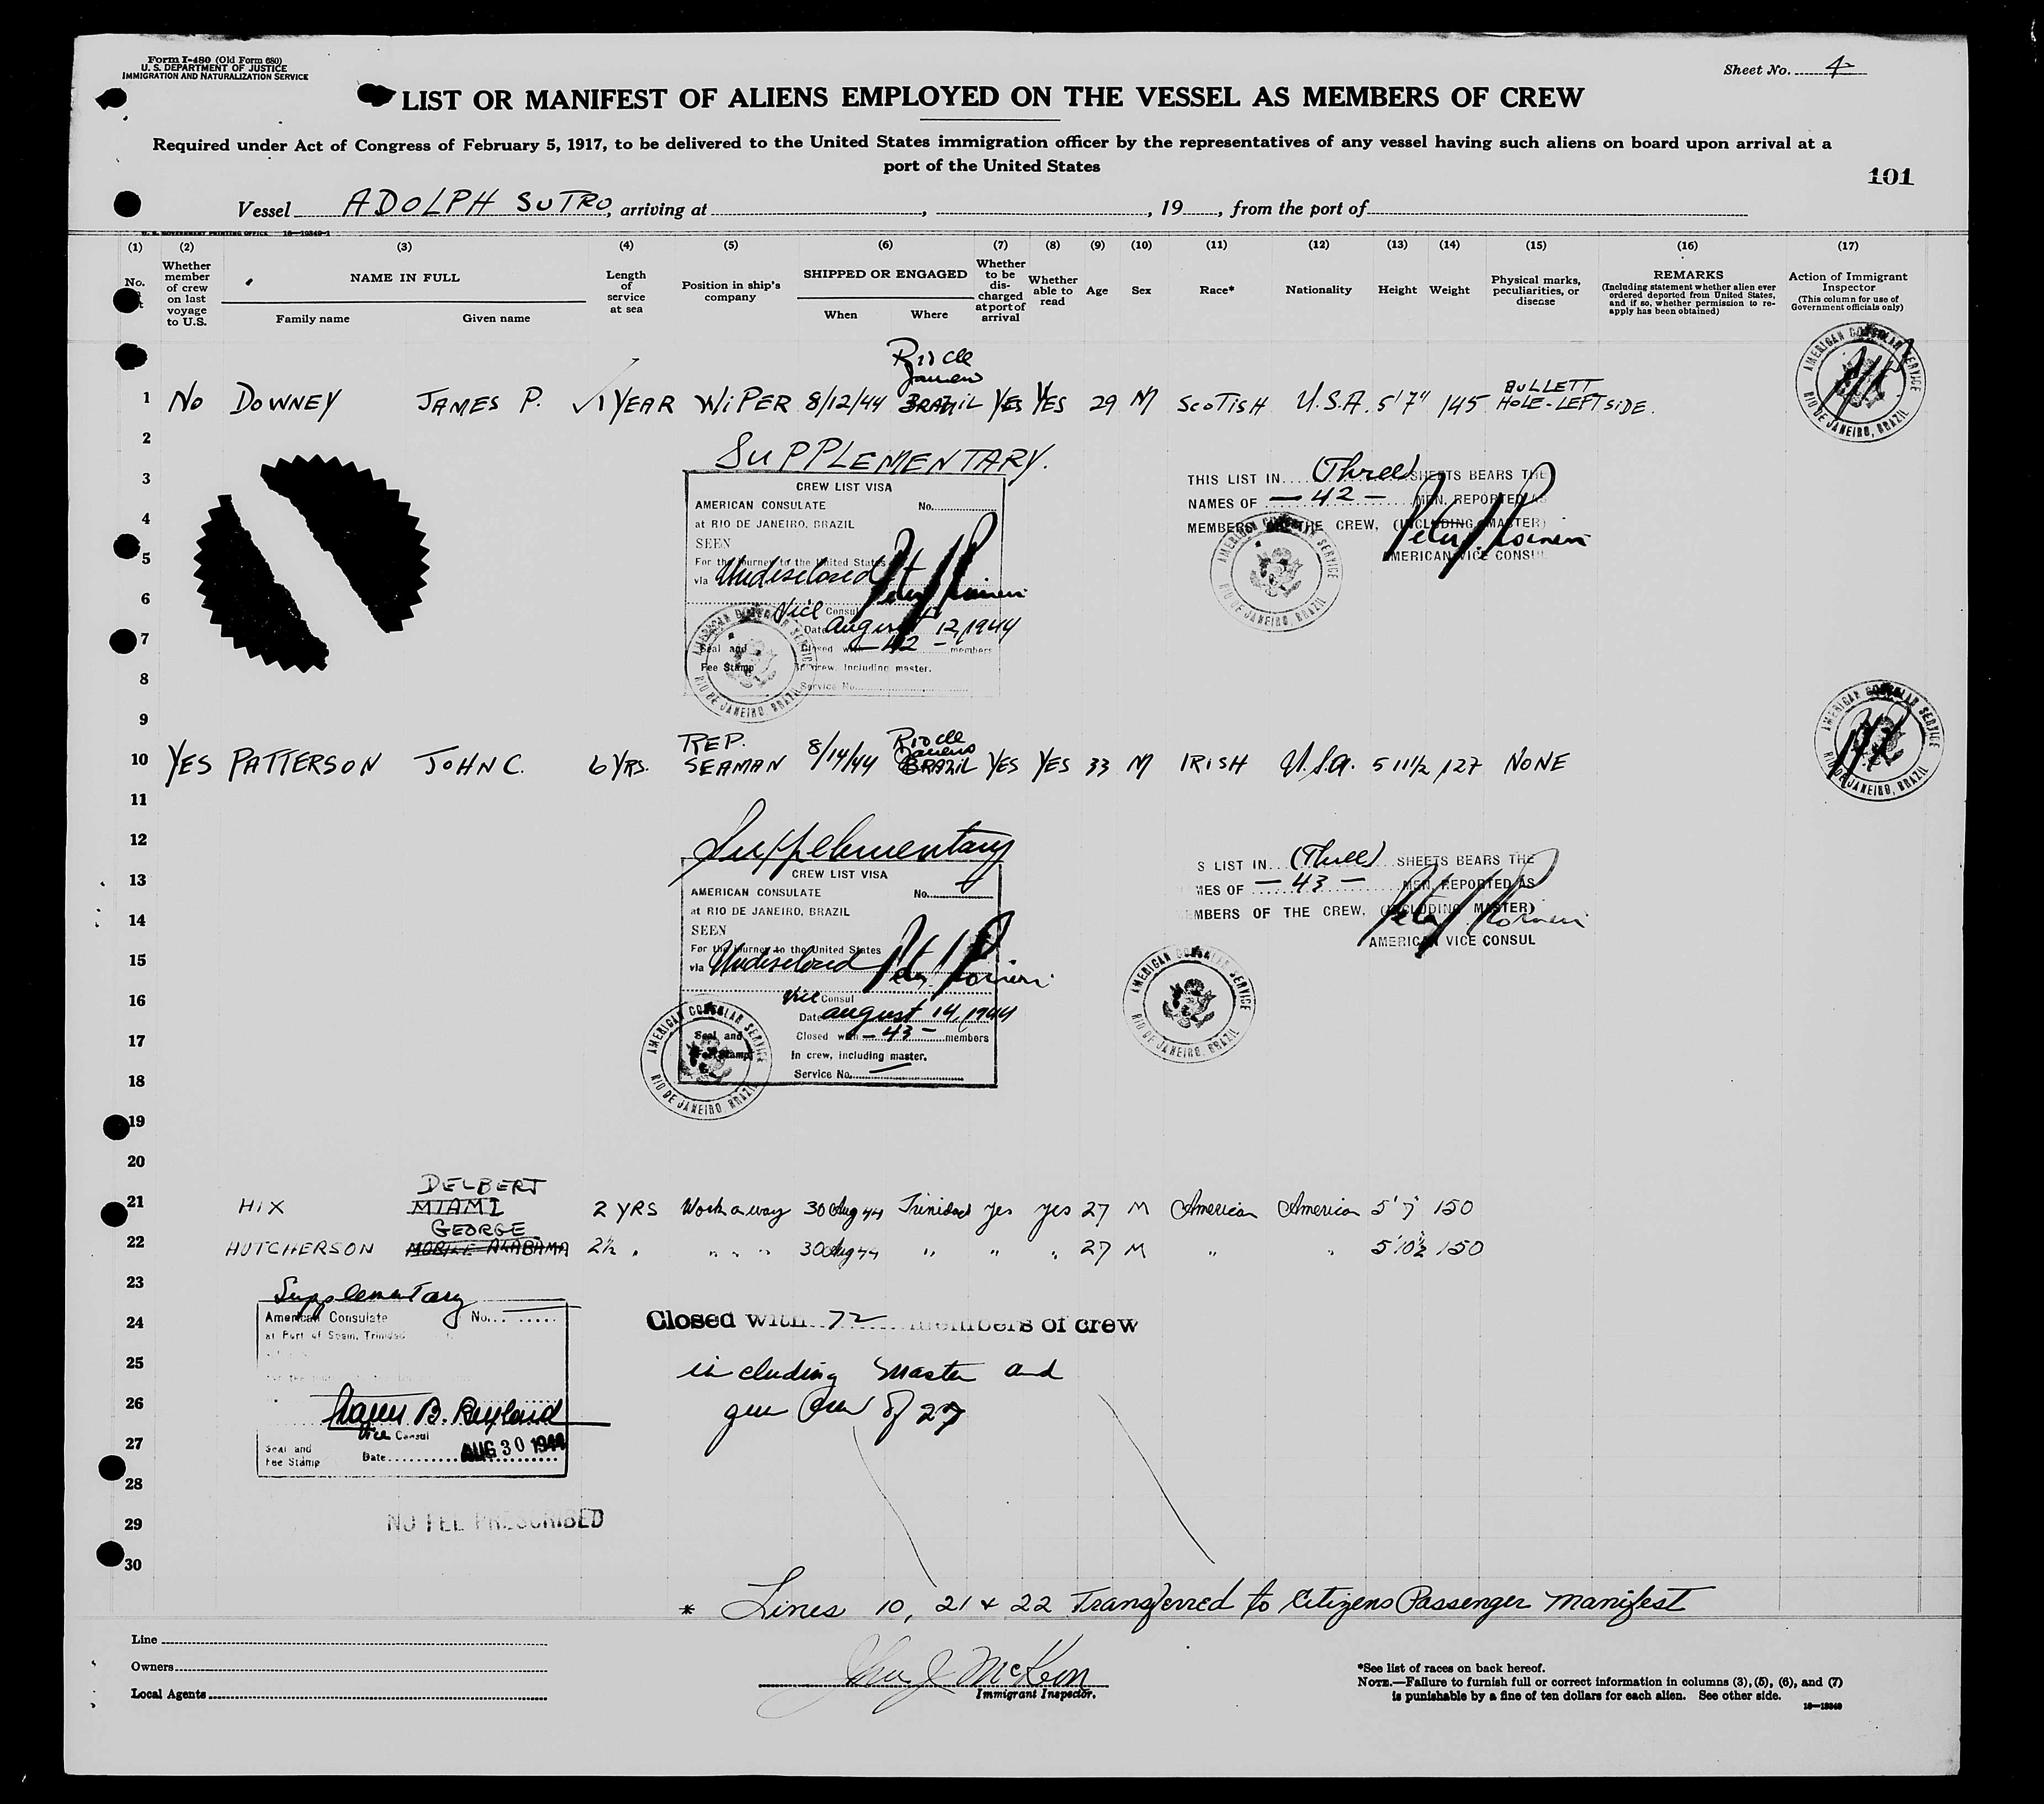 Form I-480 (Old Form 680)
U. S. DEPARTMENT OF JUSTICE
IMMIGRATION AND NATURALIZATION SERVICE
Sheet No. 4
LIST OR MANIFEST OF ALIENS EMPLOYED ON THE VESSEL AS MEMBERS OF CREW
Required under Act of Congress of February 5, 1917, to be delivered to the United States immigration officer by the representatives of any vessel having such aliens on board upon arrival at a
port of the United States
101
Vessel ADOLPH SUTRO, arriving at , , 19 , from the port of
U. S. GOVERNMENT PRINTING OFFICE 16—19349-1
(1) (2) (3) (4) (5) (6) (7) (8) (9) (10) (11) (12) (13) (14) (15) (16) (17)
No.
Whether member of crew on last voyage to U.S.
NAME IN FULL
Family name Given name
Length of service at sea
Position in ship's company
SHIPPED OR ENGAGED
When Where
Whether to be discharged at port of arrival
Whether able to read
Age
Sex
Race*
Nationality
Height
Weight
Physical marks, peculiarities, or disease
REMARKS
(Including statement whether alien ever ordered deported from United States, and if so, whether permission to reapply has been obtained)
Action of Immigrant Inspector
(This column for use of Government officials only)
Rio de
Janeiro
1 NO DOWNEY JAMES P. ✓1 YEAR WIPER 8/12/44 BRAZIL YES YES 29 M SCOTISH U.S.A. 5'7" 145 BULLETT HOLE-LEFT SIDE.
AMERICAN CONSULAR SERVICE
RIO DE JANEIRO, BRAZIL
2
SUPPLEMENTARY.
3
CREW LIST VISA
AMERICAN CONSULATE No.
at RIO DE JANEIRO, BRAZIL
SEEN
For the journey to the United States
via Undisclosed
Vice Consul
Date August 12, 1944
Seal and Fee Stamp
Closed with - 42 - members
In crew, including master.
Service No.
AMERICAN CONSULAR SERVICE
RIO DE JANEIRO, BRAZIL
THIS LIST IN (Three) SHEETS BEARS THE
NAMES OF - 42 - MEN, REPORTED AS
MEMBERS OF THE CREW, (INCLUDING MASTER)
AMERICAN VICE CONSUL
AMERICAN CONSULAR SERVICE
RIO DE JANEIRO, BRAZIL
4
5
6
7
8
9
REP. Rio de
Janeiro
10 YES PATTERSON JOHN C. 6 YRS. SEAMAN 8/14/44 BRAZIL YES YES 33 M IRISH U.S.A. 5 11½ 127 NONE
AMERICAN CONSULAR SERVICE
RIO DE JANEIRO, BRAZIL
11
12
Supplementary
13
CREW LIST VISA
AMERICAN CONSULATE No.
at RIO DE JANEIRO, BRAZIL
SEEN
For the journey to the United States
via Undisclosed
Vice Consul
Date August 14, 1944
Seal and Fee Stamp
Closed with - 43 - members
In crew, including master.
Service No.
AMERICAN CONSULAR SERVICE
RIO DE JANEIRO, BRAZIL
S LIST IN (Three) SHEETS BEARS THE
MES OF - 43 - MEN, REPORTED AS
EMBERS OF THE CREW, (INCLUDING MASTER)
AMERICAN VICE CONSUL
AMERICAN CONSULAR SERVICE
RIO DE JANEIRO, BRAZIL
14
15
16
17
18
19
20
DELBERT
21 HIX MIAMI 2 YRS Work a way 30 Aug 44 Trinidad yes yes 27 M American American 5'7" 150
GEORGE
22 HUTCHERSON MOBILE ALABAMA 2½ " " " " 30 Aug 44 " " " 27 M " " 5'10½" 150
23
Supplementary
American Consulate No.
at Port of Spain, Trinidad
B.
Vice Consul
Seal and
Fee Stamp
Date AUG 30 1944
24
Closed with 72 members of crew
25
including Master and
26
gun crew of 27
27
28
NO FEE PRESCRIBED
29
30
* Lines 10, 21 & 22 Transferred to Citizens Passenger Manifest
Line
Owners
Local Agents
J McKeon
Immigrant Inspector.
*See list of races on back hereof.
NOTE.—Failure to furnish full or correct information in columns (3), (5), (6), and (7)
is punishable by a fine of ten dollars for each alien. See other side.
16—19349